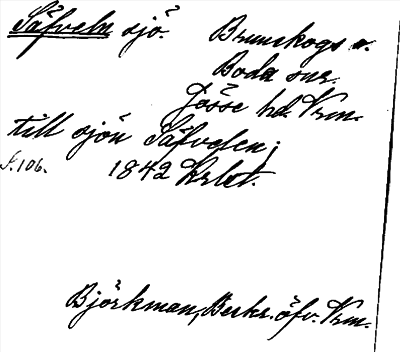 Säfveln sjö. Brunskogs o.
Boda snr.
Jösse hd. Vrm.
till sjön Säfvelen;
s. 106. 1842 Krbt.
Björkman, Beskr. öfv. Vrm.